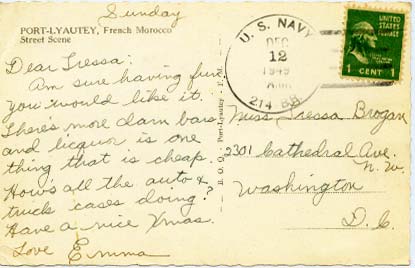 Sunday
PORT-LYAUTEY, French Morocco
Street Scene
Dear Tressa:
Am sure having fun
you would like it.
There's more darn bars
and liquor is one
thing that is cheap.
How's all the auto &
truck cases doing?
Have a nice Xmas.
Love Emma
U. S. NAVY
DEC
12
1949
A.M.
214 BR
UNITED STATES
POSTAGE
1 CENT 1
Miss Tressa Brogan
2301 Cathedral Ave.
N. W.
Washington
D. C.